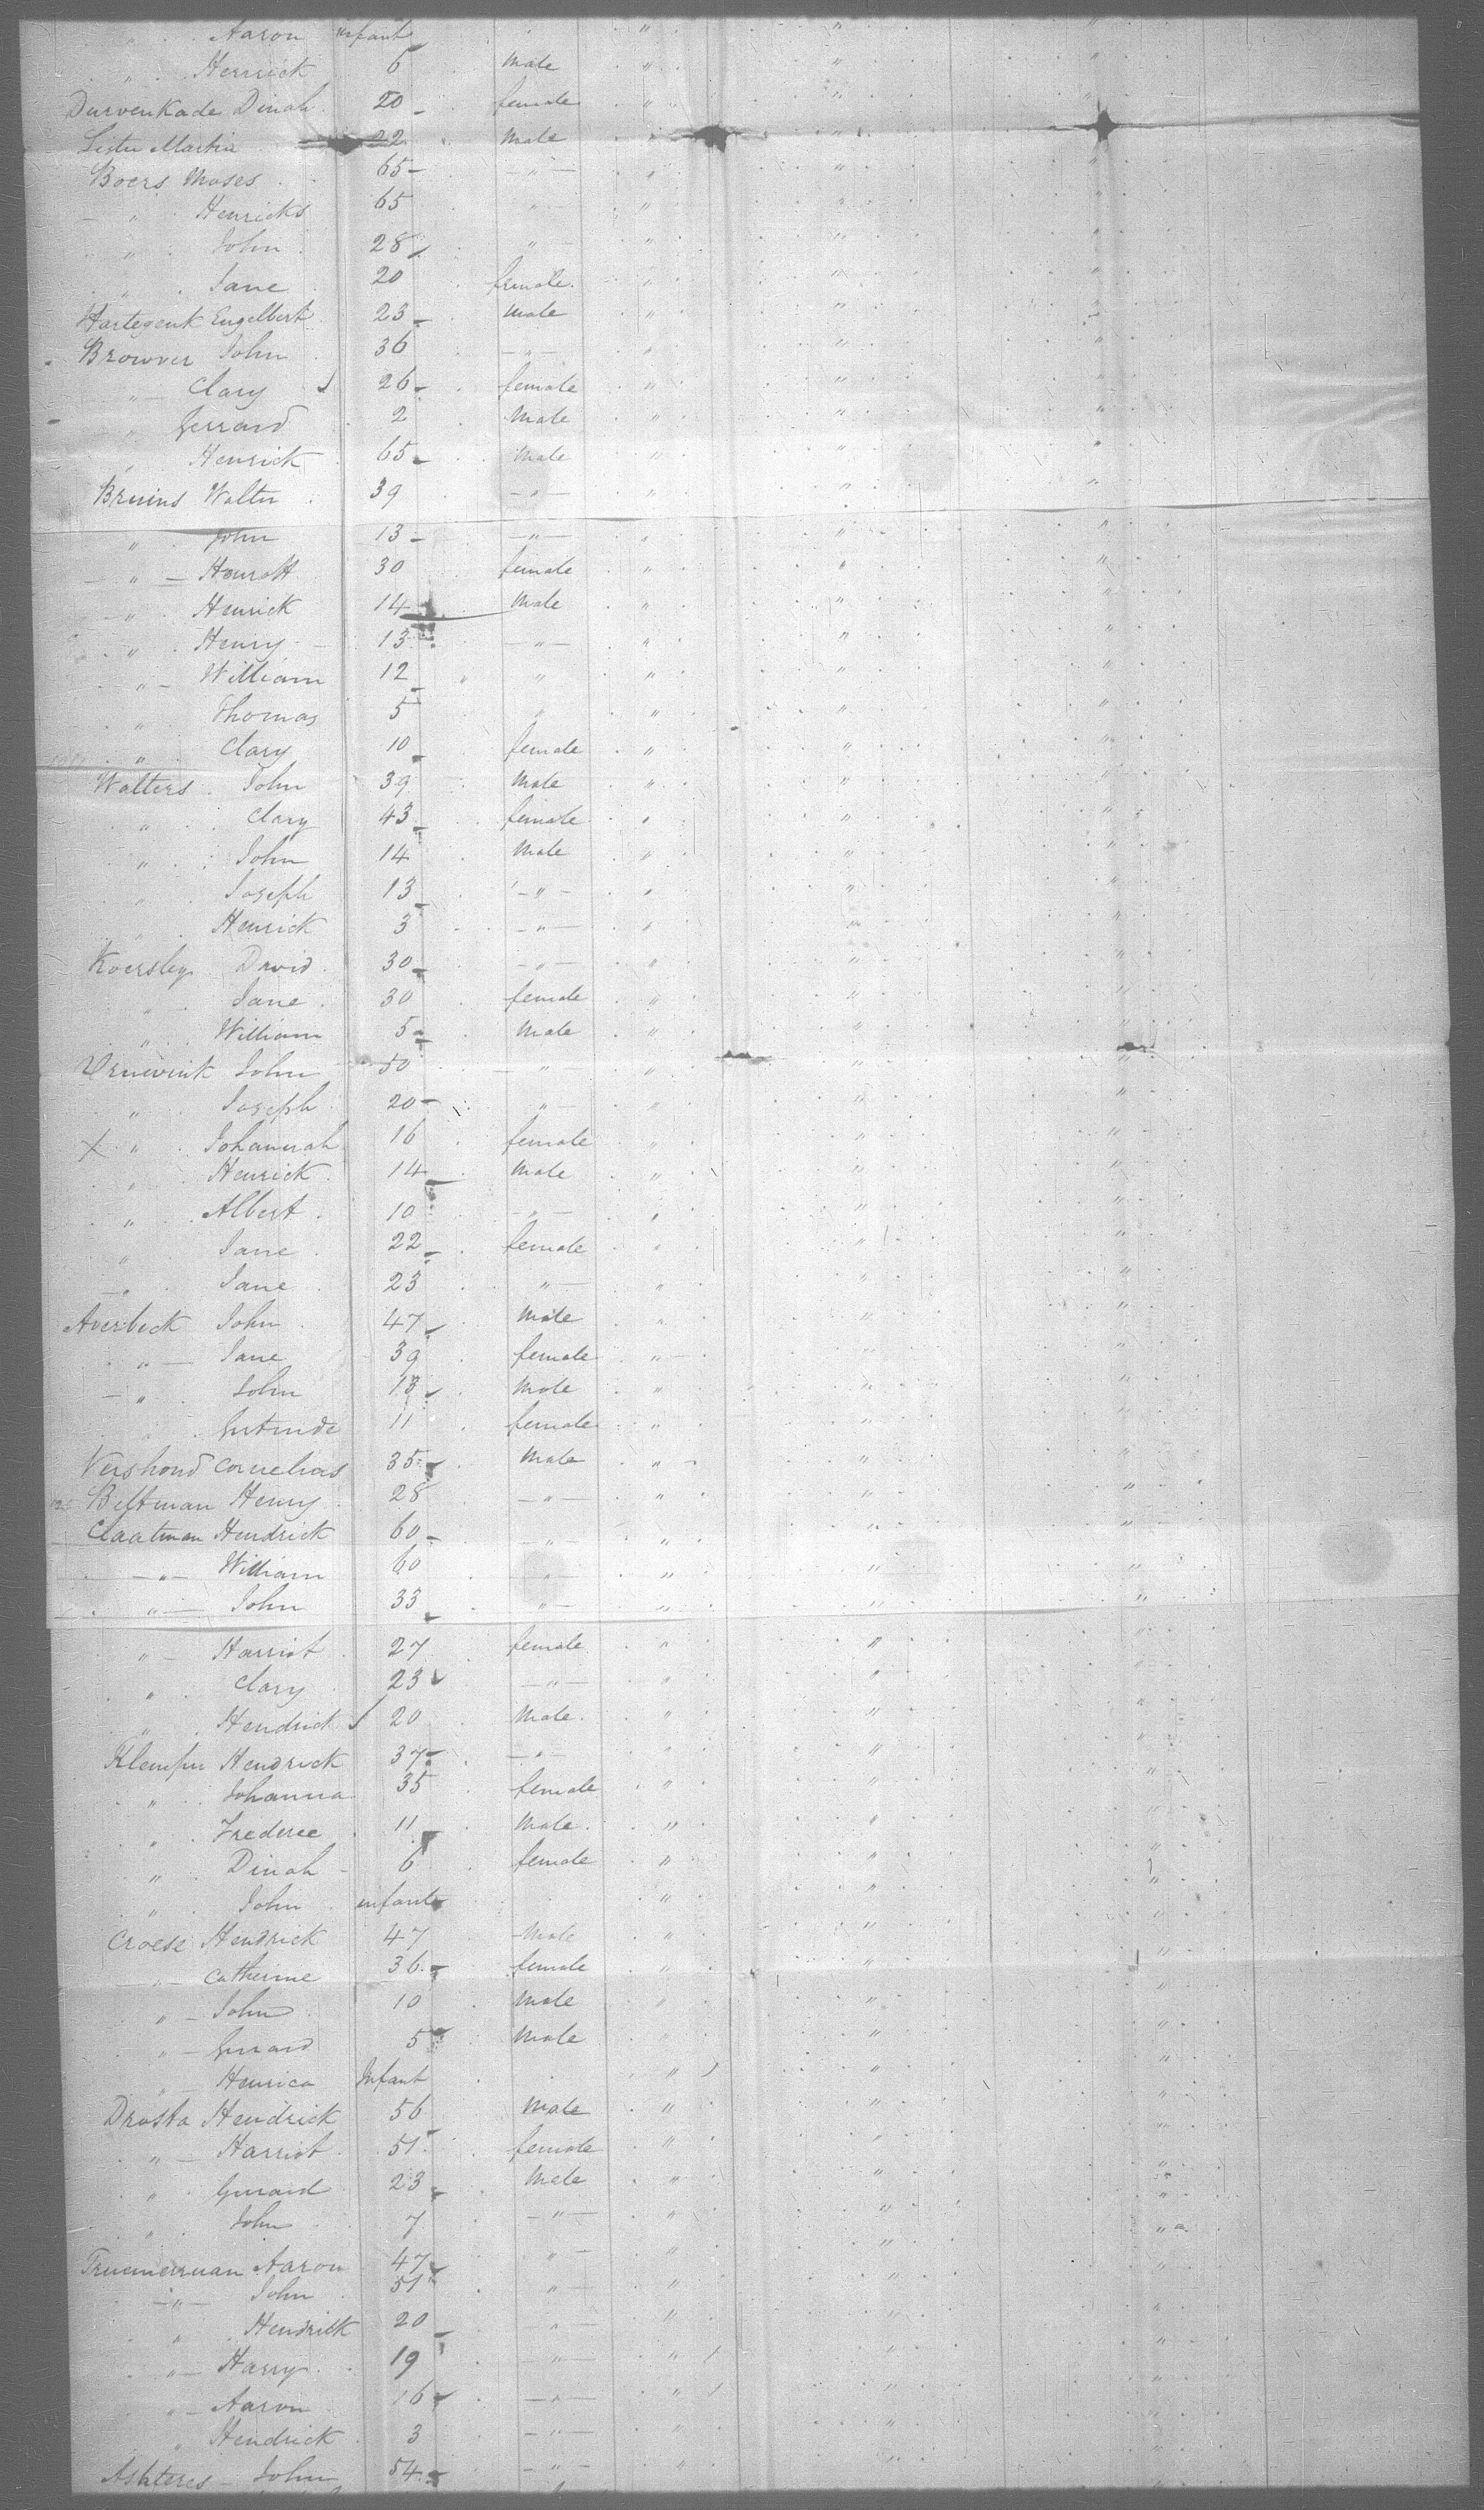 " Aaron infant " " "
" Herrick 6 male " " "
Durvenkade Dinah 20 female " " "
Lister Martin 22 male " " "
Boers Moses 65 " " " "
" Henricks 65 " " " "
" John 28 " " " "
" Jane 20 female " " "
Hartegenk Engelbert 23 male " " "
Browver John 36 " " " "
" Clary 26 female " " "
" Gerrard 2 male " " "
" Henrick 65 male " " "
Bruins Walter 39 " " " "
" John 13 " " " "
" Henrott 30 female " " "
" Henrick 14 male " " "
" Henry 13 " " " "
" William 12 " " " "
" Thomas 5 " " " "
" Clary 10 female " " "
Walters John 39 male " " "
" Clary 43 female " " "
" John 14 male " " "
" Joseph 13 " " " "
" Henrick 3 " " " "
Koersley David 30 " " " "
" Jane 30 female " " "
" William 5 male " " "
Vruwink John 50 " " " "
" Joseph 20 " " " "
X " Johannah 16 female " " "
" Henrick 14 male " " "
" Albert 10 " " " "
" Jane 22 female " " "
" Jane 23 " " " "
Averbeck John 47 male " " "
" Jane 39 female " " "
" John 13 male " " "
Gertrude 11 female " " "
Vershond Cornelias 35 male " " "
Beltman Henry 28 " " " "
Claatman Hendrick 60 " " " "
" William 60 " " " "
" John 33 " " " "
" Harriot 27 female " " "
" Clary 23 " " " "
" Hendrick 20 male " " "
Klempu Hendrick 37 " " " "
" Johanna 35 female " " "
" Frederee 11 male " " "
" Dinah 6 female " " "
" John infant " " "
Croese Hendrick 47 male " " "
" Catherine 36 female " " "
" John 10 male " " "
" Gerrard 5 male " " "
" Henrica Infant " " "
Drosta Hendrick 56 male " " "
" Harriot 51 female " " "
" Gerrard 23 male " " "
" John 7 " " " "
Trummerman Aaron 47 " " " "
" John 51 " " " "
" Hendrick 20 " " " "
" Harry 19 " " " "
" Aaron 16 " " " "
" Hendrick 3 " " " "
Ashteres John 54 " " " "